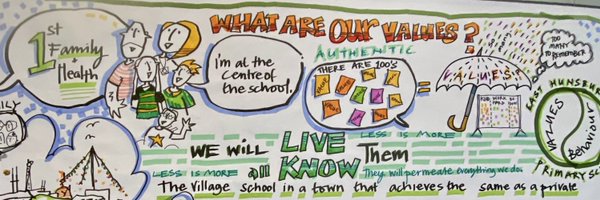 WHAT ARE OUR VALUES?
1st
Family
+
Health
I'm at the
centre of
the school.
AUTHENTIC
THERE ARE 100's
=
VALUES!
TOO
MANY TO
REMEMBER
EAST HUNSBURY
VALUES
Behaviour
PRIMARY SC
ILY
WE WILL LIVE
LESS IS MORE
LESS IS MORE
all KNOW Them
They will permeate everything we do.
The Village school in a town that achieves the same as a private